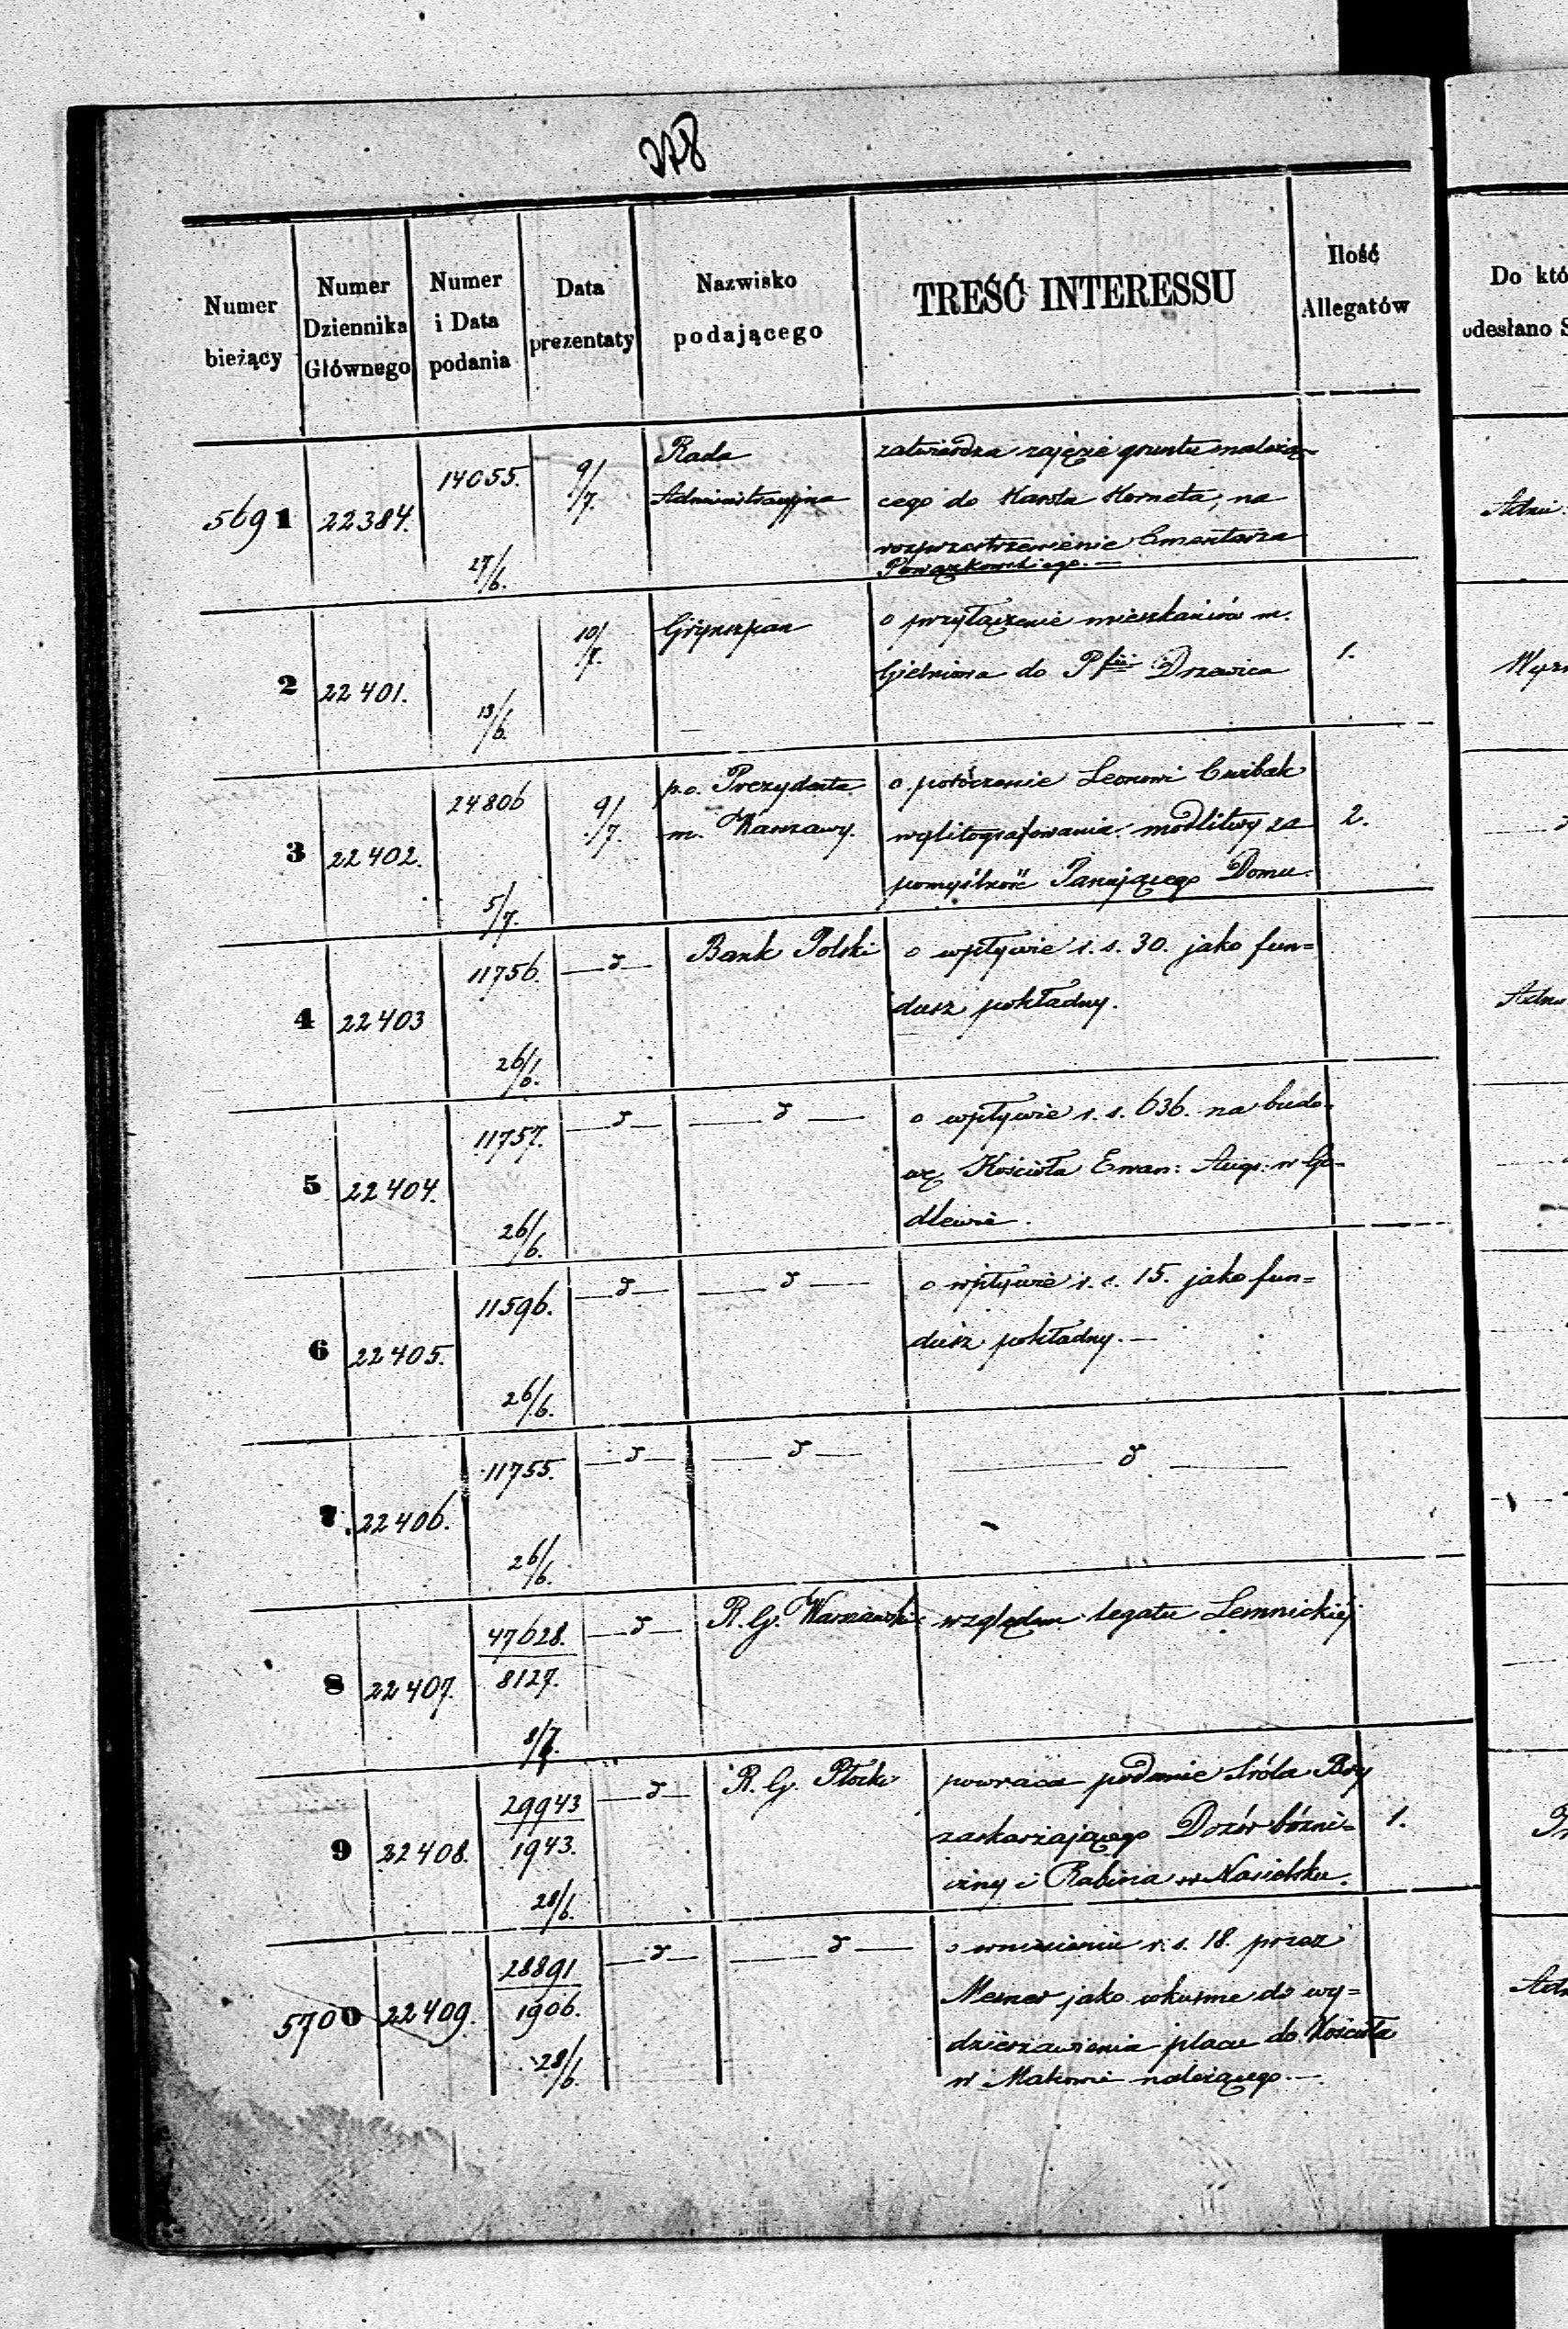 278
Numer bieżący
Numer Dziennika Głównego
Numer i Data podania
Data prezentaty
Nazwisko podającego
TREŚĆ INTERESSU
Ilość Allegatów
Do któ
odesłano S
5691 22384. 14055. 27/6. 9/7. Rada Administracyjna
zatwierdza zajęcie gruntu należą-
cego do Karola Korneta, na
rozprzestrzenienie Cmentarza
Powązkowskiego. —
Adm:
2 22401. 13/6. 10/7. Grynszpan
o przyłączenie mieszkańców m.
Gielniowa do Pfii Drzewica
1.
3 22402. 24806 5/7. 9/7. p.o. Prezydenta
m. Warszawy.
o poruczenie Leonowi Cwibak
wylitografowania modlitwy za
pomyślność Panującego Domu.
2.
4 22403 11756. 26/6. — d — Bank Polski
o wpływie r. s. 30. jako fun=
dusz pokładny.
5 22404. 11757. 26/6. — d — — d —
o wpływie r. s. 636. na budo-
wę Kościoła Ewan: Augs: w Go-
dlewie.
6 22405. 11596. 26/6. — d — — d —
o wpływie r. s. 15. jako fun=
dusz pokładny. —
7 22406. 11755. 26/6. — d — — d — — d —
8 22407. 47628. 8127. 8/7. — d — R. G. Warszawski
względem legatu Lemnickiéj
9 22408. 29943 1943. 28/6. — d — R. G. Płocki
powraca podanie Sróla Bry
zaskarżającego Dozór bóżni=
czny i Rabina w Nasielsku.
1.
5700 22409. 28891 1906. 28/6. — d — — d —
o wniesieniu r. s. 18. przez
Mesner jako wkupne do wy=
dzierżawienia placu do Kościoła
w Makowie należącego. —